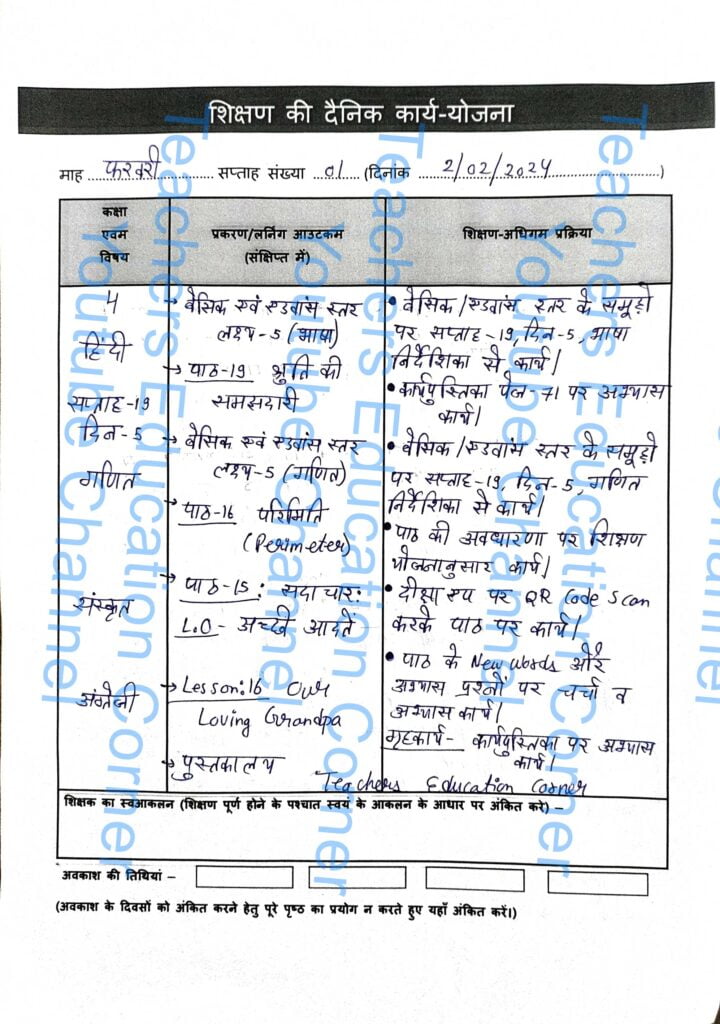 शिक्षण की दैनिक कार्य-योजना
माह फरवरी सप्ताह संख्या 01 (दिनांक 2/02/2024)
कक्षा
एवम
विषय
प्रकरण/लर्निग आउटकम
(संक्षिप्त में)
शिक्षण-अधिगम प्रक्रिया
4
हिंदी
सप्ताह-19
दिन-5
गणित
संस्कृत
अंग्रेजी
→ बेसिक एवं एडवांस स्तर
लक्ष्य-5 (भाषा)
→ पाठ-19 श्रुति की
समझदारी
→ बेसिक एवं एडवांस स्तर
लक्ष्य-5 (गणित)
→ पाठ-16 परिमिति
(Perimeter)
→ पाठ-15: सदाचार:
L.O - अच्छी आदतें
→ Lesson:16 Our
Loving Grandpa
→ पुस्तकालय
• बेसिक/एडवांस स्तर के समूहों
पर सप्ताह-19, दिन-5, भाषा
निर्देशिका से कार्य।
• कार्यपुस्तिका पेज-71 पर अभ्यास
कार्य।
• बेसिक/एडवांस स्तर के समूहों
पर सप्ताह-19, दिन-5, गणित
निर्देशिका से कार्य।
• पाठ की अवधारणा पर शिक्षण
योजनानुसार कार्य।
• दीक्षा एप पर QR Code Scan
करके पाठ पर कार्य।
• पाठ के New words और
अभ्यास प्रश्नों पर चर्चा व
अभ्यास कार्य।
गृहकार्य- कार्यपुस्तिका पर अभ्यास
कार्य।
Teachers Education Corner
शिक्षक का स्वआकलन (शिक्षण पूर्ण होने के पश्चात स्वयं के आकलन के आधार पर अंकित करे) –
अवकाश की तिथियां –
(अवकाश के दिवसों को अंकित करने हेतु पूरे पृष्ठ का प्रयोग न करते हुए यहाँ अंकित करें।)
Teachers Education Corner
Youtube Channel
Teachers Education Corner
Youtube Channel
Teachers Education Corner
Youtube Channel